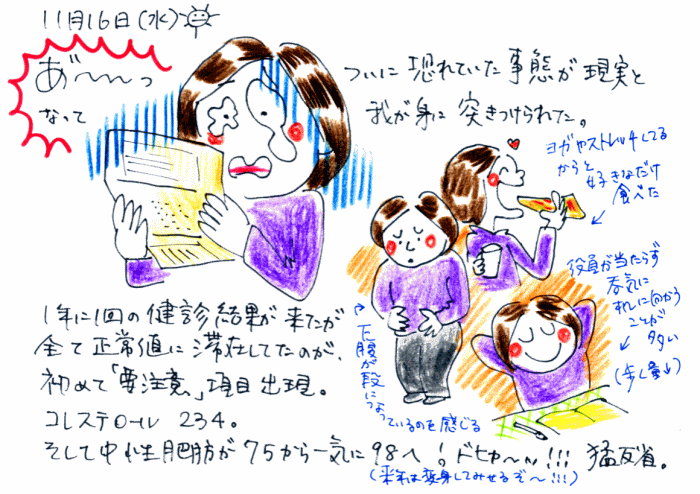 11月16日(水)
あ゛〜〜〜っ
ついに 恐れていた 事態が 現実と
なって
我が身に 突きつけられた。
ヨガやストレッチしてる
からと
好きなだけ
食べた
役員が当たらず
呑気に
机に向かう
ことが
多い
(歩く量↓)
下腹が段になっているのを感じる
1年に1回の健診結果が 来たが
全て 正常値に 滞在してたのが、
初めて「要注意」項目出現。
コレステロール 234。
そして中性脂肪が 75から一気に 98へ!ドヒャ〜ッ!!! 猛反省。
(来年は変身してみせるぞ〜!!!)